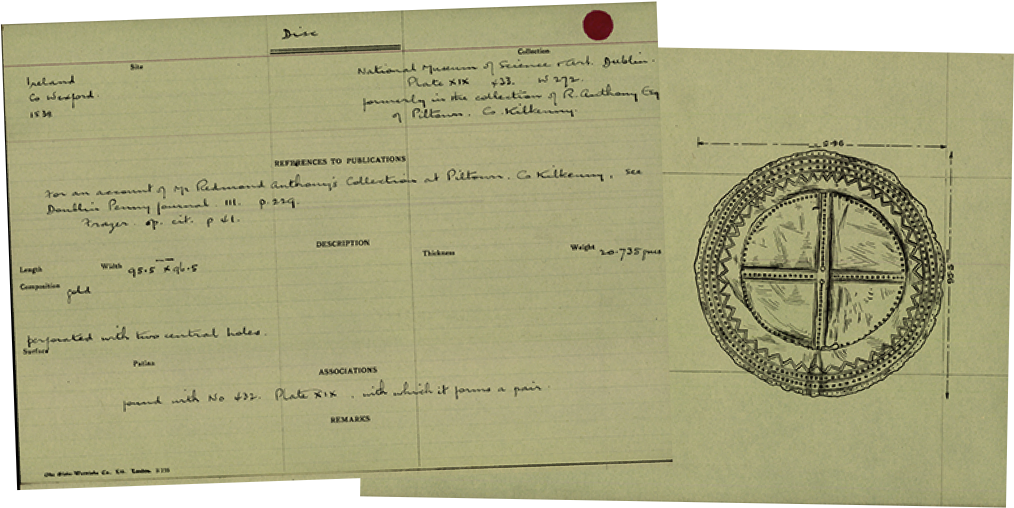 Disc
Site
Collection
Ireland
Co Wexford.
1839
National Museum of Science & Art. Dublin.
Plate XIX 433. W 272.
formerly in the collection of R. Anthony Esq
of Piltown. Co. Kilkenny.
REFERENCES TO PUBLICATIONS
For an account of Mr Redmond Anthony's Collection at Piltown. Co Kilkenny, see
Dublin Penny Journal. III. p. 229.
Frazer. op. cit. p 41.
DESCRIPTION
Length
Width 95.5 × 96.5
Thickness
Weight 20.735
Composition gold
perforated with two central holes.
Surface
Patina
ASSOCIATIONS
found with No 432. Plate XIX, with which it forms a pair.
REMARKS
Co. Ltd. London.